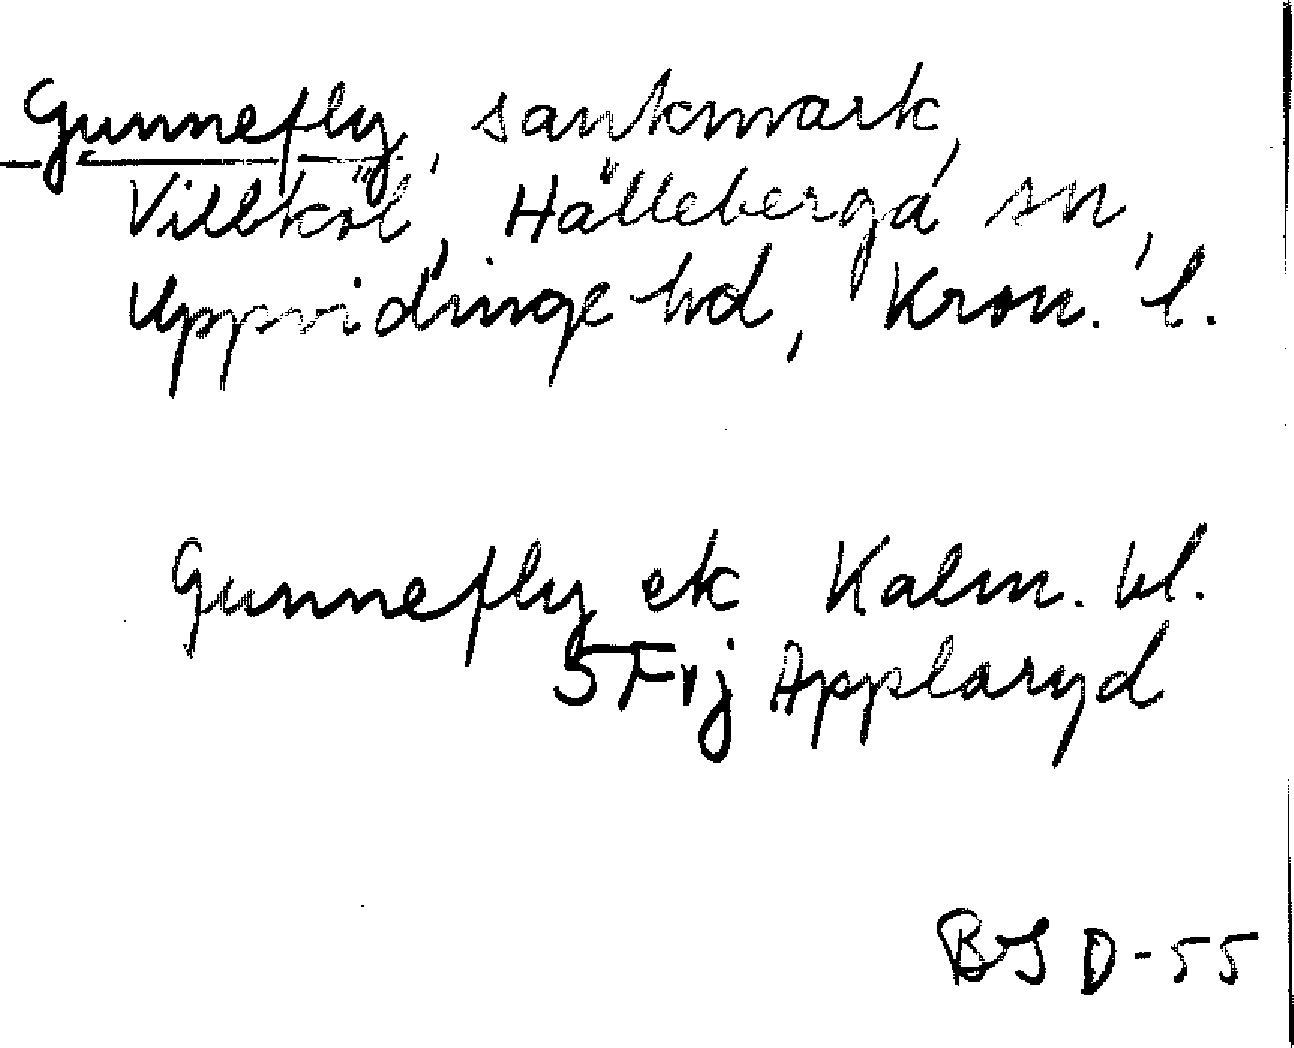 Gunnefly, sankmark,
Villköl, Hälleberga sn,
Uppvidinge hd, Kron. l.
Gunnefly ek Kalm. bl.
5 Fvj Applaryd
BJ D-55